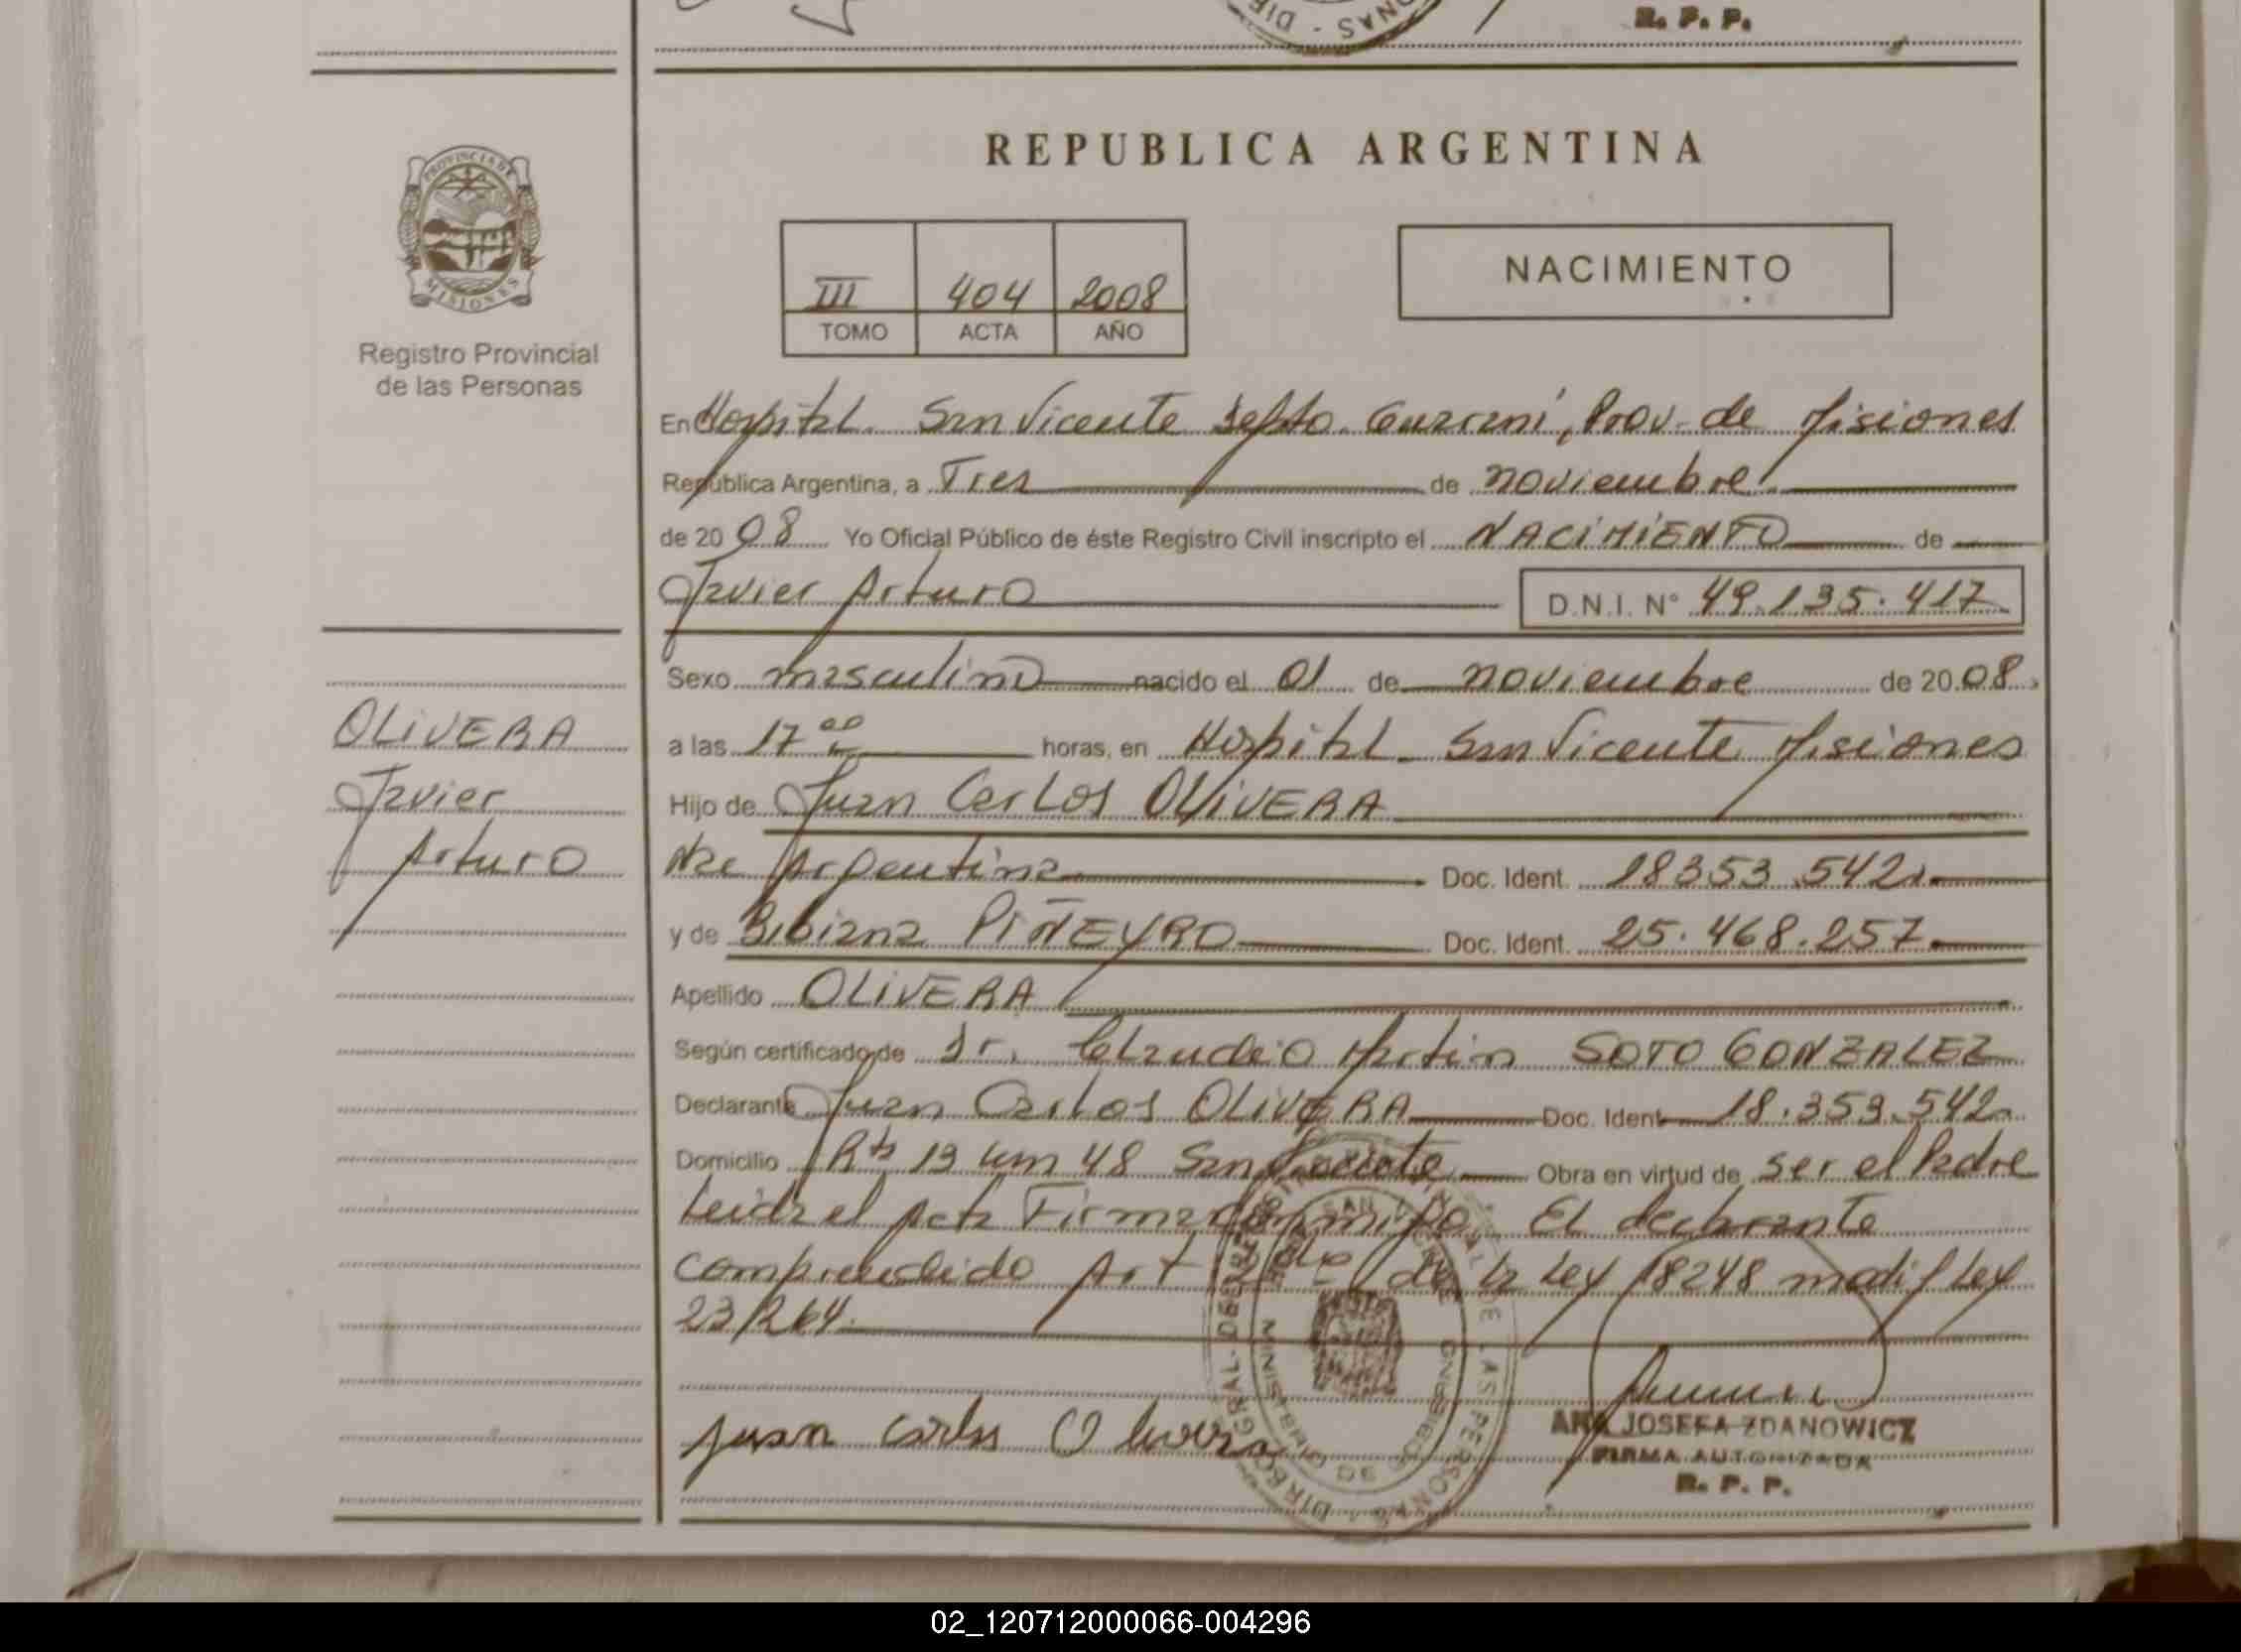 R. P. P.
PROVINCIA DE
MISIONES
Registro Provincial
de las Personas
OLIVERA
Javier
Arturo
REPUBLICA ARGENTINA
III 404 2008
TOMO ACTA AÑO
NACIMIENTO
En Hospital. San Vicente Depto. Guarani, Prov. de Misiones
República Argentina, a Tres de noviembre
de 2008 Yo Oficial Público de éste Registro Civil inscripto el NACIMIENTO de
Javier Arturo D.N.I. N° 49.135.417
Sexo masculino nacido el 01 de noviembre de 2008.
a las 17 00 horas, en Hospital San Vicente Misiones
Hijo de Juan Carlos OLIVERA
Nac Argentina Doc. Ident. 18353.542
y de Bibiana PIÑEYRO Doc. Ident. 25.468.257
Apellido OLIVERA
Según certificado de Dr. Claudio Martin SOTO GONZALEZ
Declarante Juan Carlos OLIVERA Doc. Ident 18.353.542
Domicilio Rta 13 km 48 San Vicente Obra en virtud de ser el Padre
Leida el acta Firman El declarante
comprendido Art de la Ley 18248 modif Ley
23/264.
Juan Carlos Olivera
ANA JOSEFA ZDANOWICZ
FIRMA AUTORIZADA
R. P. P.
02_120712000066-004296